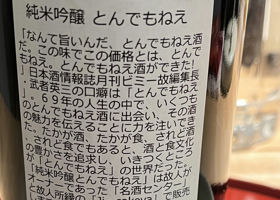 純米吟醸 とんでもねえ
「なんて旨いんだ、とんでもねえ酒
だ。この味でこの価格とは、とんで
もねえ。とんでもねえ酒ができた！
」日本酒情報誌月刊ビミー故編集長
、武者英三の口癖は「とんでもねえ
」。69年の人生の中で、いくつも
のとんでもねえ酒に出会い、その酒
の魅力を伝えることに力を注いでき
た。たかが酒、たかが食、されど酒
、されど食でもあると、酒と食文化
の豊かさを追求し、いきつくところ
が「とんでもねえ」の世界だった。
「純米吟醸とんでもねえ」は故人が
オーナーであった「名酒センター」
と故人所縁の
で販売